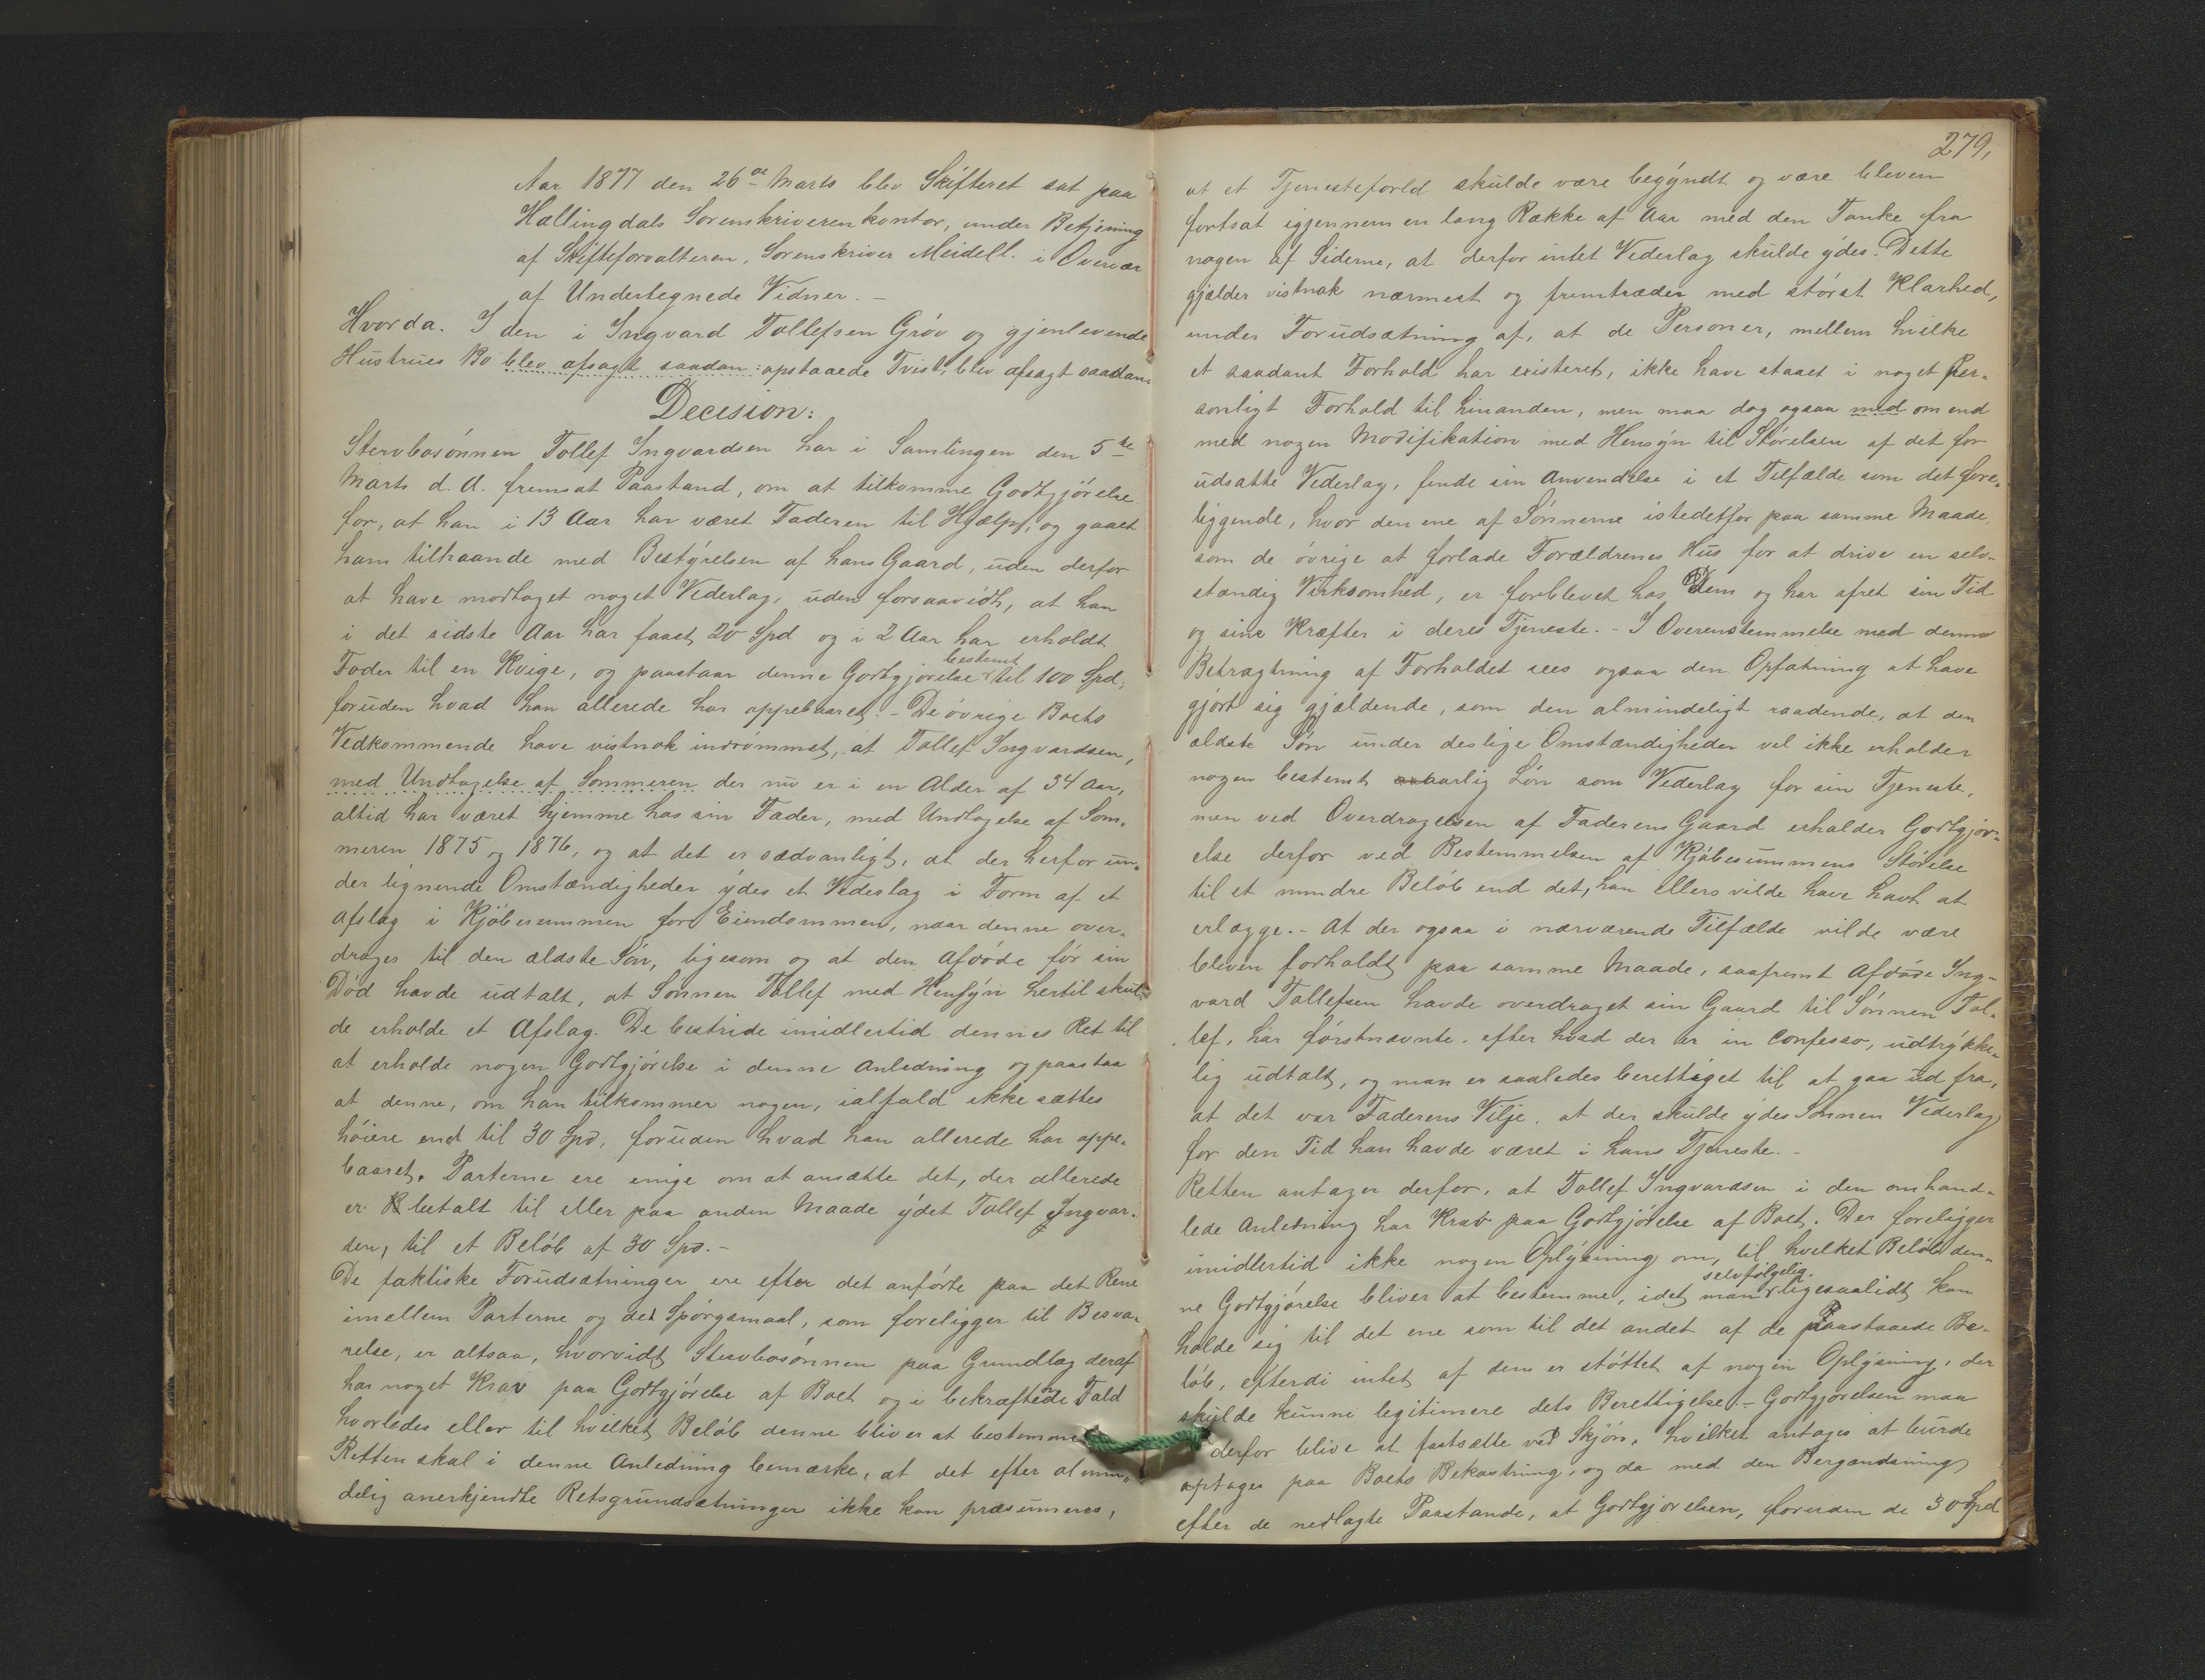 Aar 1877 den 26de Marts blev Skifteret sat paa
Hallingdals Sorenskriverenkontor, under Betjening
af Skifteforvalteren, Sorenskriver Meidell. i Overvær
af Undertegnede Vidner. –
Hvorda. I den i Ingvard Tollefsen Gröv og gjenlevende
Hustrues Bo blev afsagt saadan: opstaaede Tvist, blev afsagt saadan:
Decision:
Stervbosönnen Tollef Ingvardsen har i Samlingen den 5te
Marts d. A. fremsat Paastand, om at tilkomme Godtgjörelse
for, at han i 13 Aar har været Faderen til Hjælp, og gaaet
ham tilhaande med Bestyrelsen af hans Gaard, uden derfor
at have modtaget noget Vederlag, uden forsaavidt, at han
i det sidste Aar har faaet 20 Spd og i 2 Aar har erholdt
Foder til en Kvige, og paastaar denne Godtgjörelse bestemt til 100 Spd,
foruden hvad han allerede har oppebaaret. – De övrige Boets
Vedkommende have vistnok indrömmet, at Tollef Ingvardsen,
med Undtagelse af Sommeren der nu er i en Alder af 34 Aar,
altid har været hjemme hos sin Fader, med Undtagelse af Som-
meren 1875 og 1876, og at det er sædvanligt, at der herfor un-
der lignende Omstændigheder ydes et Vederlag i Form af et
Afslag i Kjöbesummen for Eiendommen, naar denne over-
drages til den ældste Sön, ligesom og at den Afdöde för sin
Död havde udtalt, at Sönnen Tollef med Hensyn hertil skul-
de erholde et Afslag. De bestride imidlertid dennes Ret til
at erholde nogen Godtgjörelse i denne Anledning og paastaa
at denne, om han tilkommer nogen, ialfald ikke sættes
höiere end til 30 Spd, foruden hvad han allerede har oppe-
baaret. Parterne ere enige om at ansætte det, der allerede
er betalt til eller paa anden Maade ydet Tollef Ingvar-
sen, til et Belöb af 30 Spd. –
De faktiske Forudsætninger ere efter det anförte paa det Rene
imellem Parterne og det Spörgsmaal, som foreligger til Besva-
relse, er altsaa, hvorvidt Stervbosönnen paa Grundlag deraf
har noget Krav paa Godtgjörelse af Boet og i bekræftende Fald
hvorledes eller til hvilket Belöb denne bliver at bestemme
Retten skal i denne Anledning bemærke, at det efter almin-
delig anerkjendte Retsgrundsætninger ikke kan præsumeres,
279,
at et Tjenesteforld skulde være begyndt og være bleven
fortsat igjennem en lang Række af Aar med den Tanke fra
nogen af Siderne, at derfor intet Vederlag skulde ydes. Dette
gjælder vistnok nærmest og fremtræder med störst Klarhed,
under Forudsætning af, at de Personer, mellem hvilke
et saadant Forhold har existeret, ikke have staaet i noget per-
sonligt Forhold til hinanden, men maa dog ogsaa med om end
med nogen Modifikation med Hensyn til Störelsen af det for
udsatte Vederlag, finde sin Anvendelse i et Tilfælde som det fore-
liggende, hvor den ene af Sönnerne istedetfor paa samme Maade
som de övrige at forlade Forældrenes Hus for at drive en selv-
stændig Virksomhed, er forblevet hos Dem og har ofret sin Tid
og sine Kræfter i deres Tjeneste. – I Overenstemmelse med denne
Betragtning af Forholdet sees ogsaa den Opfatning at have
gjört sig gjældende, som den almindeligt raadende, at den
ældste Sön under deslige Omstændigheder vel ikke erholder
nogen bestemt aarlig Lön som Vederlag for sin Tjeneste,
men ved Overdragelsen af Faderens Gaard erholder Godtgjör-
else derfor ved Bestemmelsen af Kjöbesummens Störelse
til et mindre Belöb end det, han ellers vilde have havt at
erlægge. – At der ogsaa i nærværende Tilfælde vilde være
bleven forholdt paa samme Maade, saafremt Afdöde Ing-
vard Tollefsen havde overdraget sin Gaard til Sönnen Tol-
lef, har förstnævnte, efter hvad der er in confesso, udtrykke-
lig udtalt, og man er saaledes berettiget til at gaa ud fra,
at det var Faderens Vilje, at der skulde ydes Sönnen Vederlag
for den Tid han havde været i hans Tjeneste. –
Retten antager derfor, at Tollef Ingvardsen i den omhand-
lede Anledning har Krav paa Godtgjörelse af Boet. Der foreligger
imidlertid ikke nogen Oplysning om, til hvilket Belöb den-
ne Godtgjörelse bliver at bestemme, idet man selvfölgelig ligesaalidt kan
holde sig til det ene som til det andet af de Paastaaede Be-
löb, efterdi intet af dem er stöttet af nogen Oplysning, der
skulde kunne legitimere dets Berettigelse. – Godtgjörelsen maa
derfor blive at fastsætte ved Skjön, hvilket antages at burde
optages paa Boets Bekostning, og da med den Begrændsning
efter de nedlagte Paastande, at Godtgjörelsen, foruden de 30 Spd